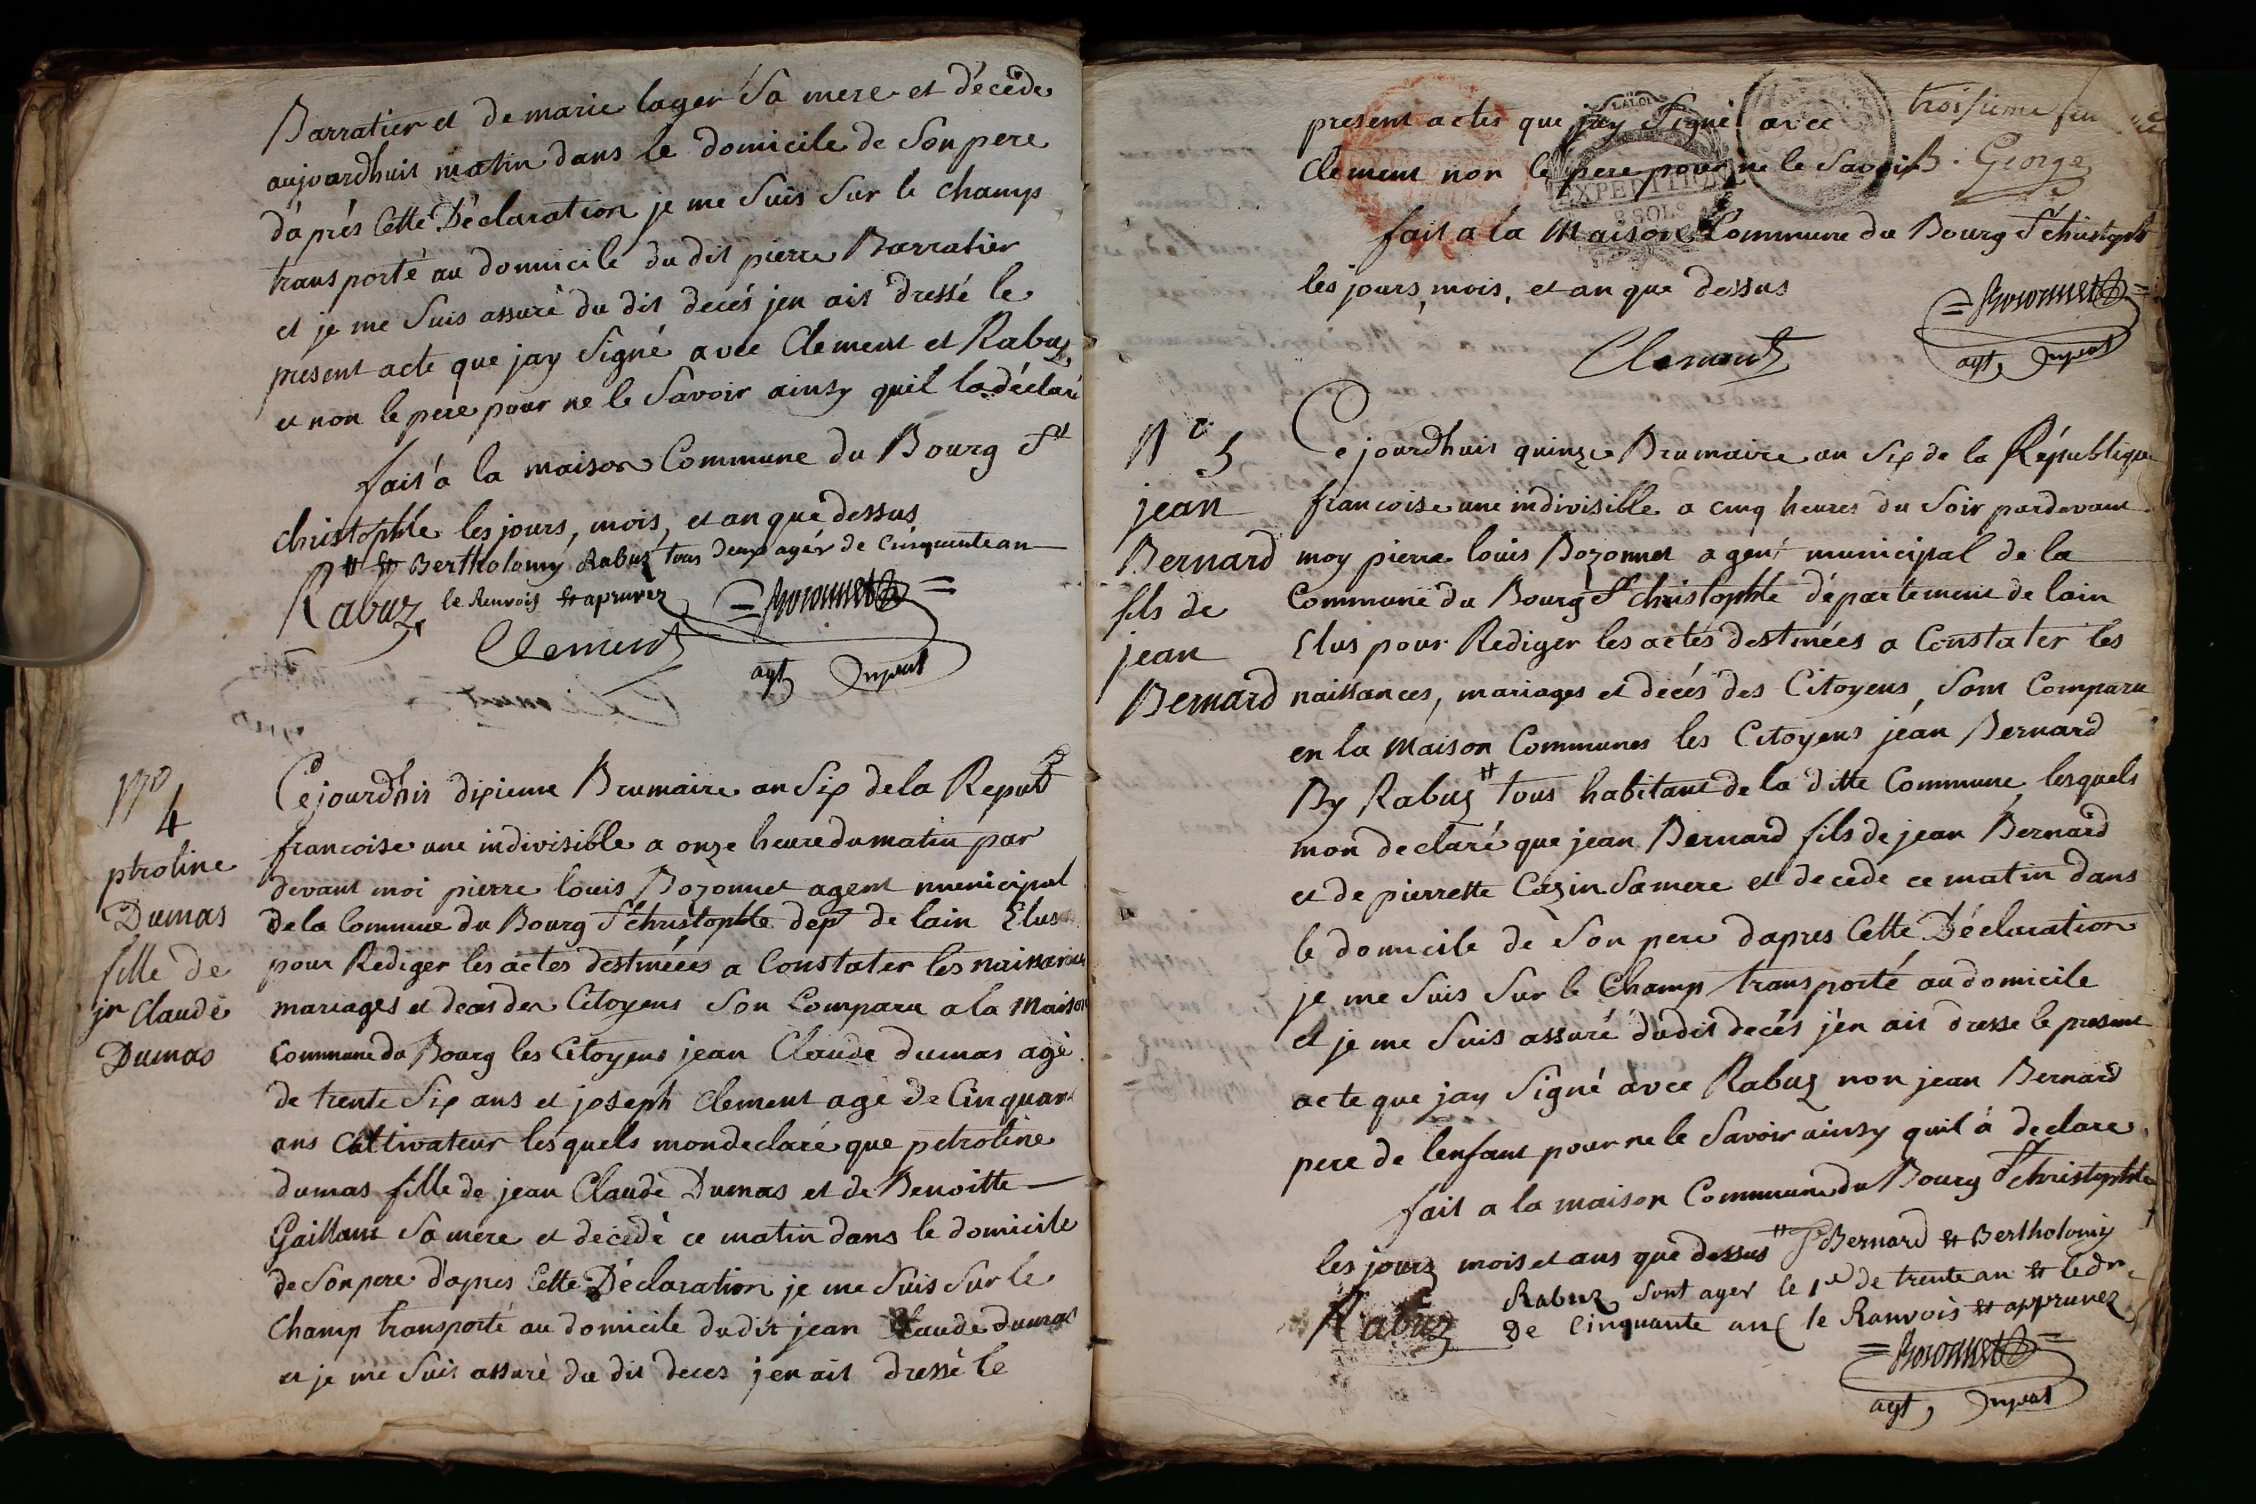 Barratier et de marie lager Sa mere et décédé
aujourdhuit matin dans le domicile de Son pere
d'aprés Cette Déclaration je me Suis Sur le champ
transporté au domicile du dit pierre Barratier
et je me Suis assuré du dit decés jen ait dressé le
present acte que jay Signé avec Clement et Rabuz
et non le pere pour ne le Savoir ainsy quil la déclaré
fait à la maison Commune du Bourg St
christophle les jours, mois, et an que dessus
# et Bertholomy Rabuz tous deux agér de Cinquante an
Rabuz le Renvois et apruvez
Bozonnet
Clement
agt
No
4
ptroline
Dumas
fille de
jn Claude
Dumas
Cejourdhis dixieme Brumaire an Six de la Repub
francoise une indivisible a onze heure du matin par
devant moi pierre louis Bozonnet agent municipal
de la Commue du Bourg St christophle dept de lain Elus
pour Rediger les actes destinéés a Constater les naissances
mariages et deces des Citoyens Son Comparu a la Maison
Commune du Bourg les Citoyens jean Claude dumas agé
de trente Six ans et joseph Clement agé de Cinquant
ans Cultivateur lesquels mon declaré que petroline
dumas fille de jean Claude Dumas et de Benoitte
Gaillant Sa mere et decédé ce matin dans le domicile
de Son pere d'apres Cette Déclaration je me Suis Sur le
Champ transporté au domicile du dit jean Claude dumas
et je me Suis assuré du dit deces jen ait dressé le
present actes que jay Signé avec
troisieme
Clement non le pere pour ne le Savoir
B. George
LA LOI
EXPEDITION
8 SOLS
fait a la Maison Commune du Bourg St christophle
les jours, mois, et an que dessus
Bozonnet
Clement
agt
No 5
jean
Bernard
fils de
jean
Bernard
Cejourdhuit quinze Brumaire an Six de la République
francoise une indivisible a cinq heures du Soir pardevant
moy pierre louis Bozonnet agent municipal de la
Commune du Bourg St christophle département de lain
Elus pour Rediger les actes destinées a Constater les
naissances, mariages et decés des Citoyens, Sont Comparu
en la Maison Communes les Citoyens jean Bernard
By Rabuz # tous habitant de la ditte Commune lesquels
mon declaré que jean Bernard fils de jean Bernard
et de pierrette Cazin Sa mere et decede ce matin dans
le domicile de Son pere dapres Cette Déclaration
je me Suis Sur le Champ transporté au domicile
et je me Suis assuré dudit decés j'en ait dresse le present
acte que jay Signé avec Rabuz non jean Bernard
pere de lenfant pour ne le Savoir ainsy quil à declare
fait a la maison Commune du Bourg St christophle
les jours mois et ans que dessus # Bernard et Bertholomy
Rabuz Sont ager le 1er de trente an et le dr
Rabuz de Cinquante an le Ranvois et appruvez
Bozonnet
agt